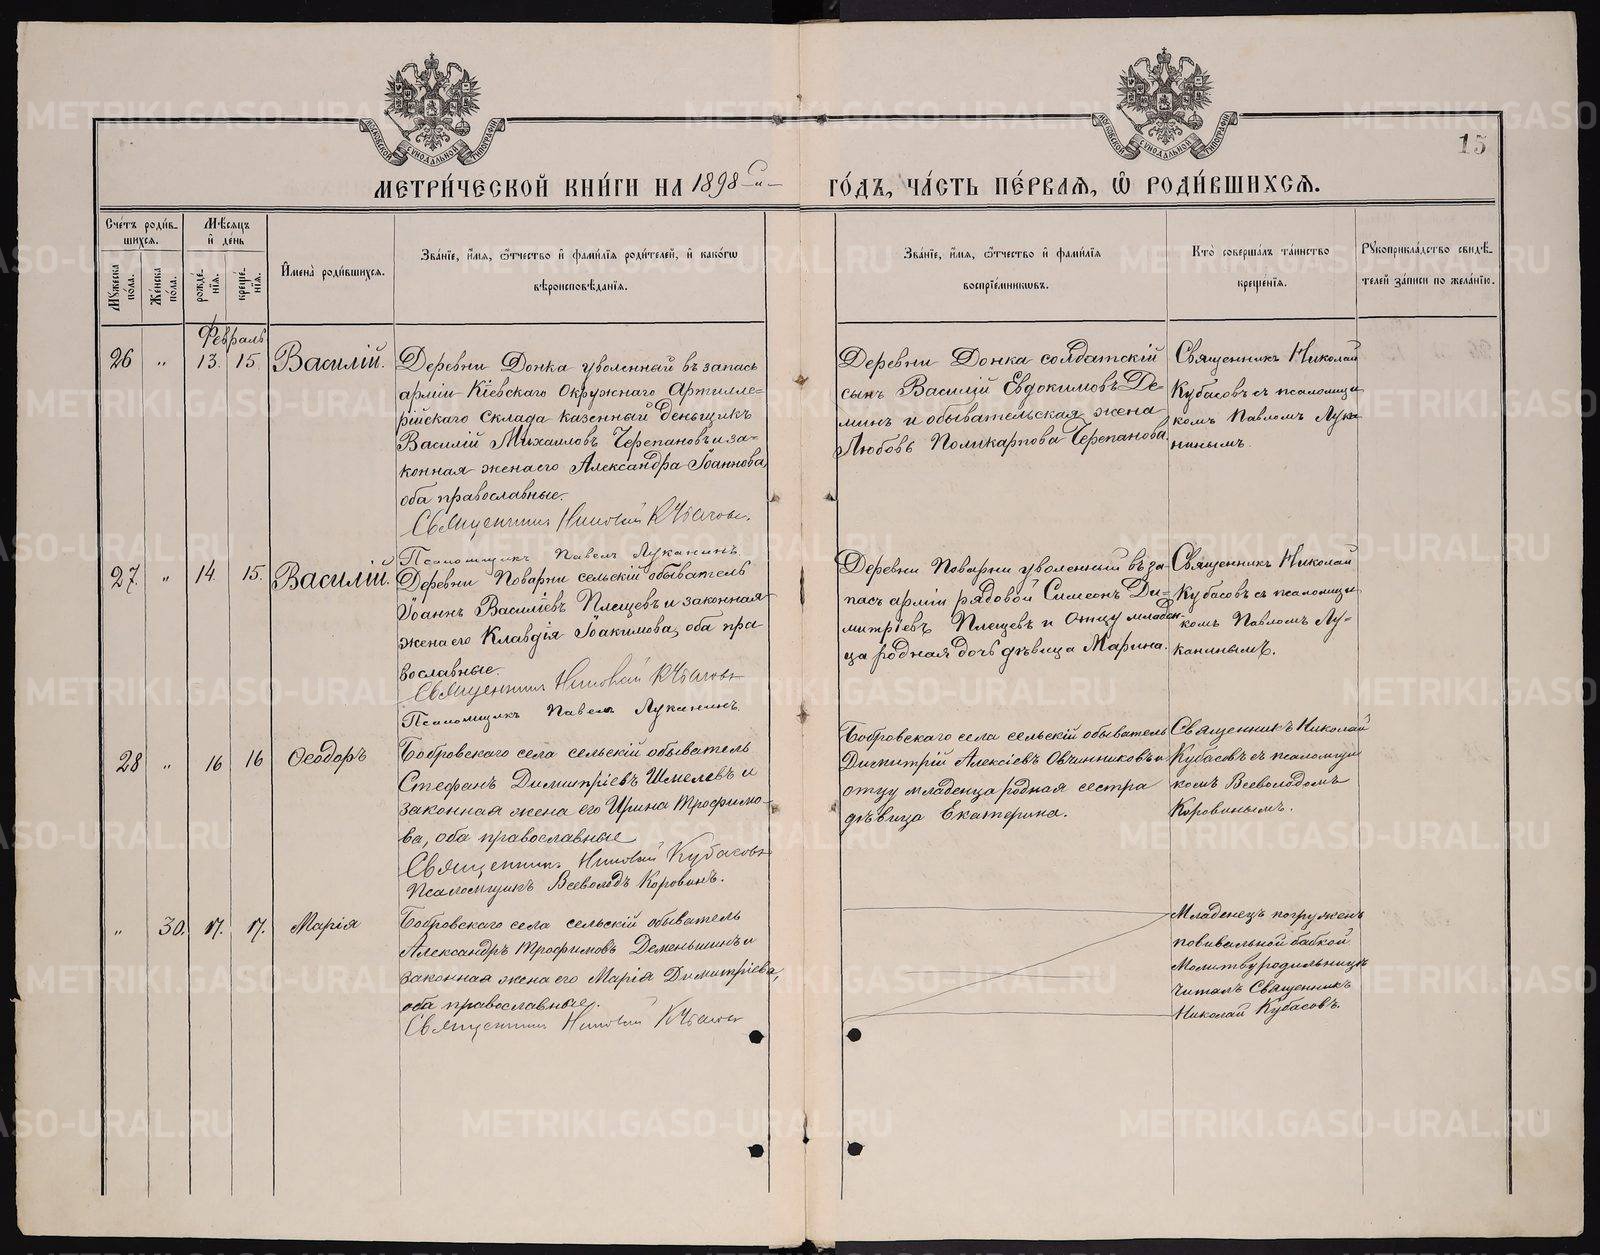 МОСКОВСКОЙ СѴНОДАЛЬНОЙ ТИПОГРАФІИ
МОСКОВСКОЙ СѴНОДАЛЬНОЙ ТИПОГРАФІИ
15
МЕТРИ́ЧЕСКОЙ КНИ́ГИ НА 1898-й-
ГО́ДЪ, ЧА́СТЬ ПЕ́РВАЯ, Ѡ РОДИ́ВШИХСЯ.
Сче́тъ роди́в-
шихся.
Мѣсяцъ
и де́нь
Мꙋжеска по́ла.
Же́нска по́ла.
рожде́-
нія.
креще́-
нія.
Имена̀ роди́вшихся.
Зва́нїе, и́мя, ѻ́тчество и фами́лїя роди́телей, и како́гѡ
вѣроисповѣ́данїя.
Зва́нїе, и́мя, ѻ́тчество и фами́лїя
воспрїе́мникѡвъ.
Кто̀ соверша́лъ та́инство
креще́нїя.
Рꙋкоприкла́дство свидѣ́-
телей за́писи по жела́нїю.
Февраль
26 „ 13. 15 Василій.
Деревни Донка уволенный въ запасъ
арміи Кіевскаго Окружнаго Артилле-
рійскаго Склада казенный деньщикъ
Василій Михаиловъ Черепановъ и за-
конная жена его Александра Іоаннова,
оба православные.
Священникъ Николай Кубасовъ.
Псаломщикъ Павелъ Луканинъ.
Деревни Донка солдатскій
сынъ Василій Евдокимовъ Де-
минъ и обывательская жена
Любовь Поликарпова Черепанова.
Священникъ Николай
Кубасовъ съ псаломщи
комъ Павломъ Лука
нинымъ.
27. „ 14. 15. Василій.
Деревни Поварни сельскій обыватель
Іоаннъ Василіевъ Плещевъ и законная
жена его Клавдія Іоакимова, оба пра
вославные.
Священникъ Николай Кубасовъ
Псаломщикъ Павелъ Луканинъ.
Деревни Поварни уволенный въ за-
пасъ арміи рядовой Симеонъ Ди-
митріевъ Плещевъ и отцу младен-
ца родная дочь дѣвица Марина.
Священникъ Николай
Кубасовъ съ псаломщи
комъ Павломъ Лу-
канинымъ.
28 „ 16 16 Ѳеодоръ
Бобровскаго села сельскій обыватель
Стефанъ Димитріевъ Шмелевъ и
законная жена его Ирина Трофимо-
ва, оба православные
Священникъ Николай Кубасовъ
Псаломщикъ Всеволодъ Коровинъ.
Бобровскаго села сельскій обыватель
Димитрій Алексіевъ Овчинниковъ и
отцу младенца родная сестра
дѣвица Екатерина.
Священникъ Николай
Кубасовъ съ псаломщи
комъ Всеволодомъ
Коровинымъ.
„ 30. 17. 17. Марія
Бобровскаго села сельскій обыватель
Александръ Трофимовъ Деменьшинъ и
законная жена его Марія Димитріева,
оба православные.
Священникъ Николай Кубасовъ
Младенецъ погруженъ
повивальной бабкой
Молитву родильницѣ
читалъ Священникъ
Николай Кубасовъ.
METRIKI.GASO-URAL.RU